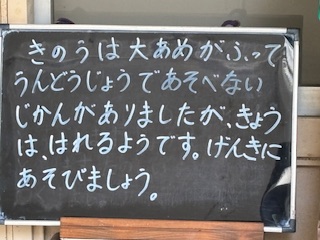 きのうは大あめがふって、
うんどうじょうであそべない
じかんがありましたが、きょう
は、はれるようです。げんきに
あそびましょう。